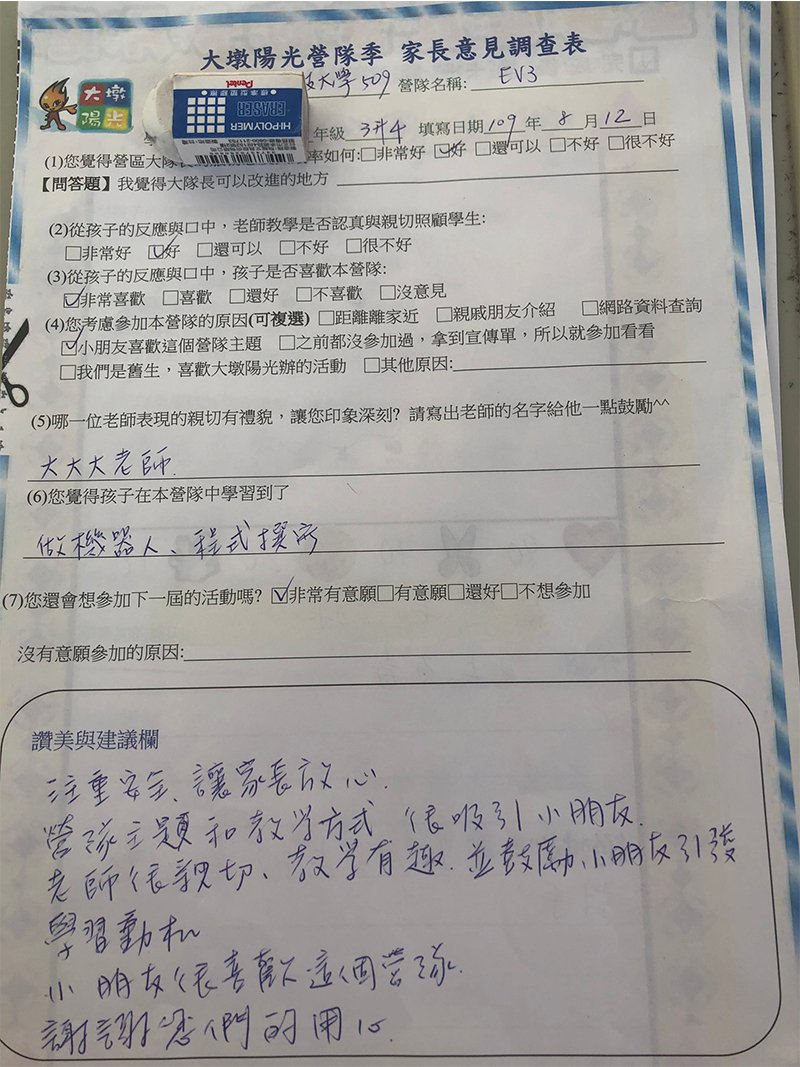 大墩陽光營隊季 家長意見調查表
大墩
陽光
大學509 營隊名稱: EV3
Pentel
標準型塑膠擦
HI-POLYMER
ERASER
年級 3升4 填寫日期 109 年 8 月 12 日
(1)您覺得營區大隊長 率如何:□非常好 ☑好 □還可以 □不好 □很不好
【問答題】我覺得大隊長可以改進的地方
(2)從孩子的反應與口中，老師教學是否認真與親切照顧學生:
□非常好 ☑好 □還可以 □不好 □很不好
(3)從孩子的反應與口中，孩子是否喜歡本營隊:
☑非常喜歡 □喜歡 □還好 □不喜歡 □沒意見
(4)您考慮參加本營隊的原因(可複選) □距離離家近 □親戚朋友介紹 □網路資料查詢
☑小朋友喜歡這個營隊主題 □之前都沒參加過，拿到宣傳單，所以就參加看看
□我們是舊生，喜歡大墩陽光辦的活動 □其他原因:
(5)哪一位老師表現的親切有禮貌，讓您印象深刻? 請寫出老師的名字給他一點鼓勵^^
大大大老師.
(6)您覺得孩子在本營隊中學習到了
做機器人、程式撰寫
(7)您還會想參加下一屆的活動嗎? ☑非常有意願□有意願□還好□不想參加
沒有意願參加的原因:
讚美與建議欄
注重安全、讓家長放心.
營隊主題和教學方式 很吸引小朋友.
老師很親切、教學有趣.並鼓勵小朋友引發
學習動机
小朋友很喜歡這個營隊.
謝謝您們的用心.